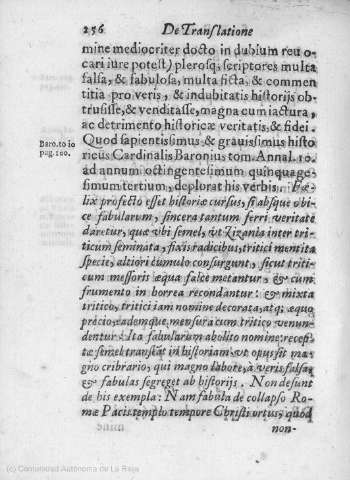 256 De Translatione
mine mediocriter docto in dubium reuo-
cari iure potest) plerosq; scriptores multa
falsa, & fabulosa, multa ficta, & commen
titia pro veris, & indubitatis historijs ob-
trusisse, & venditasse, magna cum iactura,
ac detrimento historicæ veritatis, & fidei.
Baro. to 10
pag. 100.
Quod sapientissimus & grauissimus histo-
ricus Cardinalis Baronius tom. Annal. 10.
ad annum octingentesimum quinquage-
simum tertium, deplorat his verbis. Fæ-
lix profecto esset historiæ cursus, si absque obi-
ce fabularum, sincera tantum ferri veritate
daretur, quæ vbi semel, vt Zizania inter tri-
ticum seminata, fixis radicibus, tritici mentita
specie, altiori cumulo consurgunt, sicut triti-
cum messoris æqua falce metantur, & cum
frumento in horrea recondantur: & mixta
tritico, tritici iam nomine decorata, atq; æquo
precio, eademque mensura cum tritico venun-
dentur: Ita fabularum abolito nomine: recep-
tæ semel transeāt in historiam: vt opus sit ma-
gno cribrario, qui magno labore, à veris falsa,
& fabulas segreget ab historijs. Non desunt
de his exempla: Nam fabula de collapso Ro-
mæ Pacis templo tempore Christi ortus, quod
non-
(c) Comunidad Autónoma de La Rioja